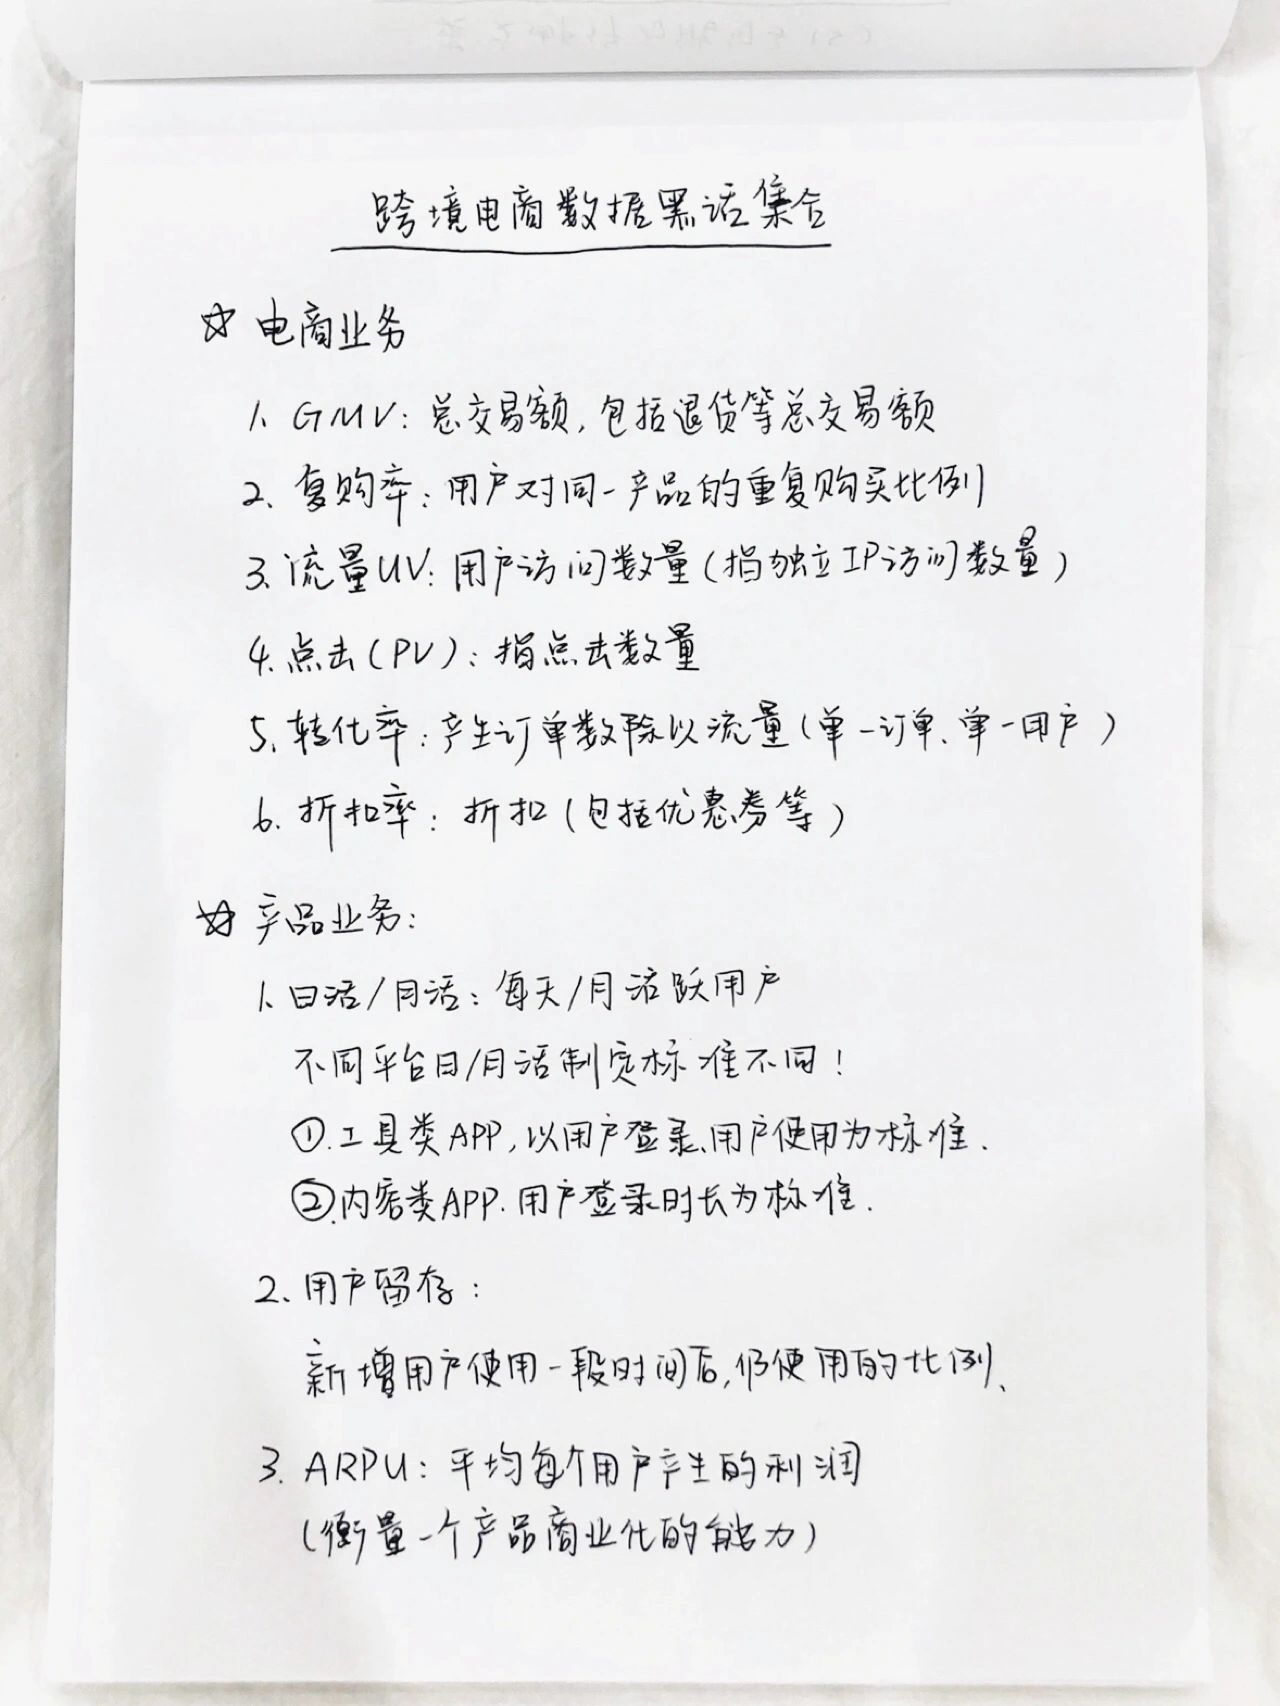 跨境电商数据黑话集合
☆ 电商业务
1. GMV：总交易额，包括退货等总交易额
2. 复购率：用户对同一产品的重复购买比例
3. 流量UV：用户访问数量（指独立IP访问数量）
4. 点击（PV）：指点击数量
5. 转化率：产生订单数除以流量（单一订单、单一用户）
6. 折扣率：折扣（包括优惠券等）
☆ 产品业务：
1. 日活/月活：每天/月活跃用户
不同平台日/月活制定标准不同！
①.工具类APP，以用户登录、用户使用为标准.
②.内容类APP.用户登录时长为标准.
2、用户留存：
新增用户使用一段时间后，仍使用的比例、
3. ARPU：平均每个用户产生的利润
（衡量一个产品商业化的能力）